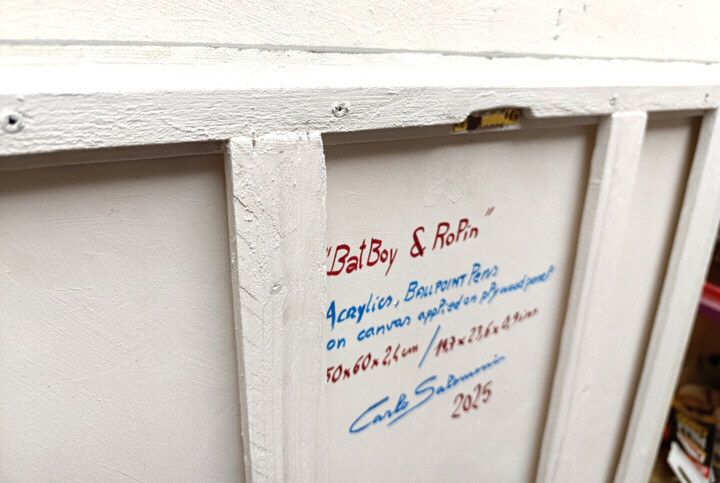 "BatBoy & RoPin"
Acrylics, BALLPOINT Pens
on canvas applied on plywood panel
50x60x2,4cm / 19,7x23,6x0,9ins
Carlo Salomoni
2025